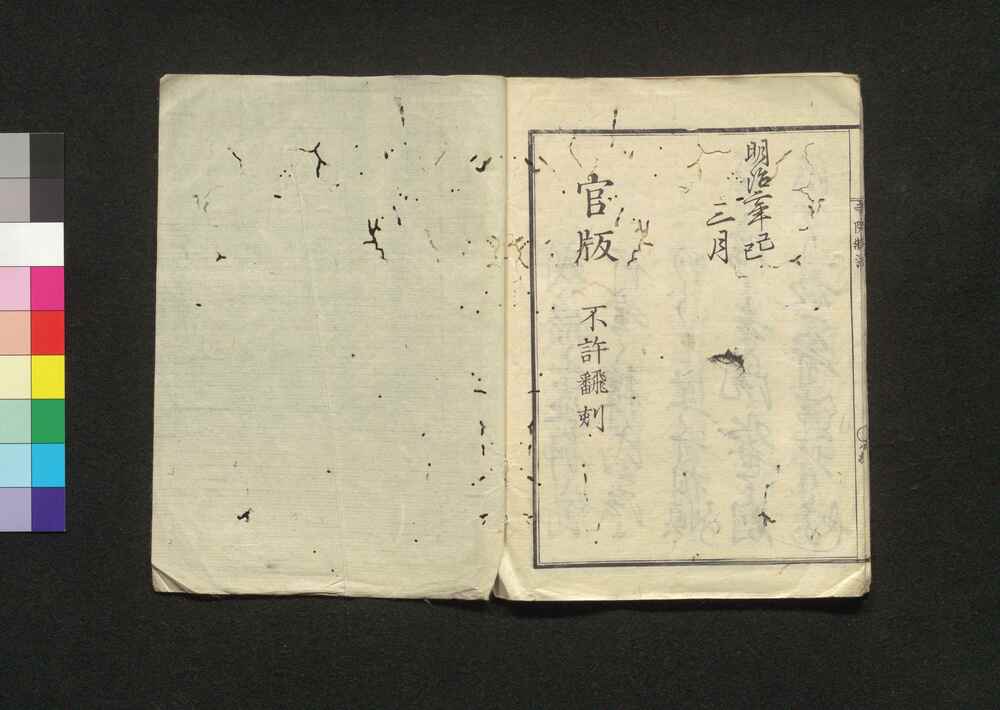 明治二年己巳
二月
官版
不許飜刻